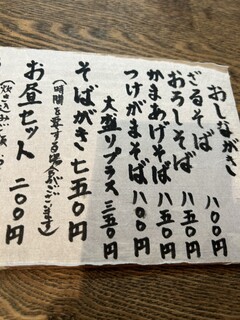 おしながき
ざるそば 八〇〇円
おろしそば 八五〇円
かまあげそば 八五〇円
つけがまそば 八〇〇円
大盛りプラス 三五〇円
そばがき 七五〇円
(時間を要する場合がございます)
お昼セット 二〇〇円